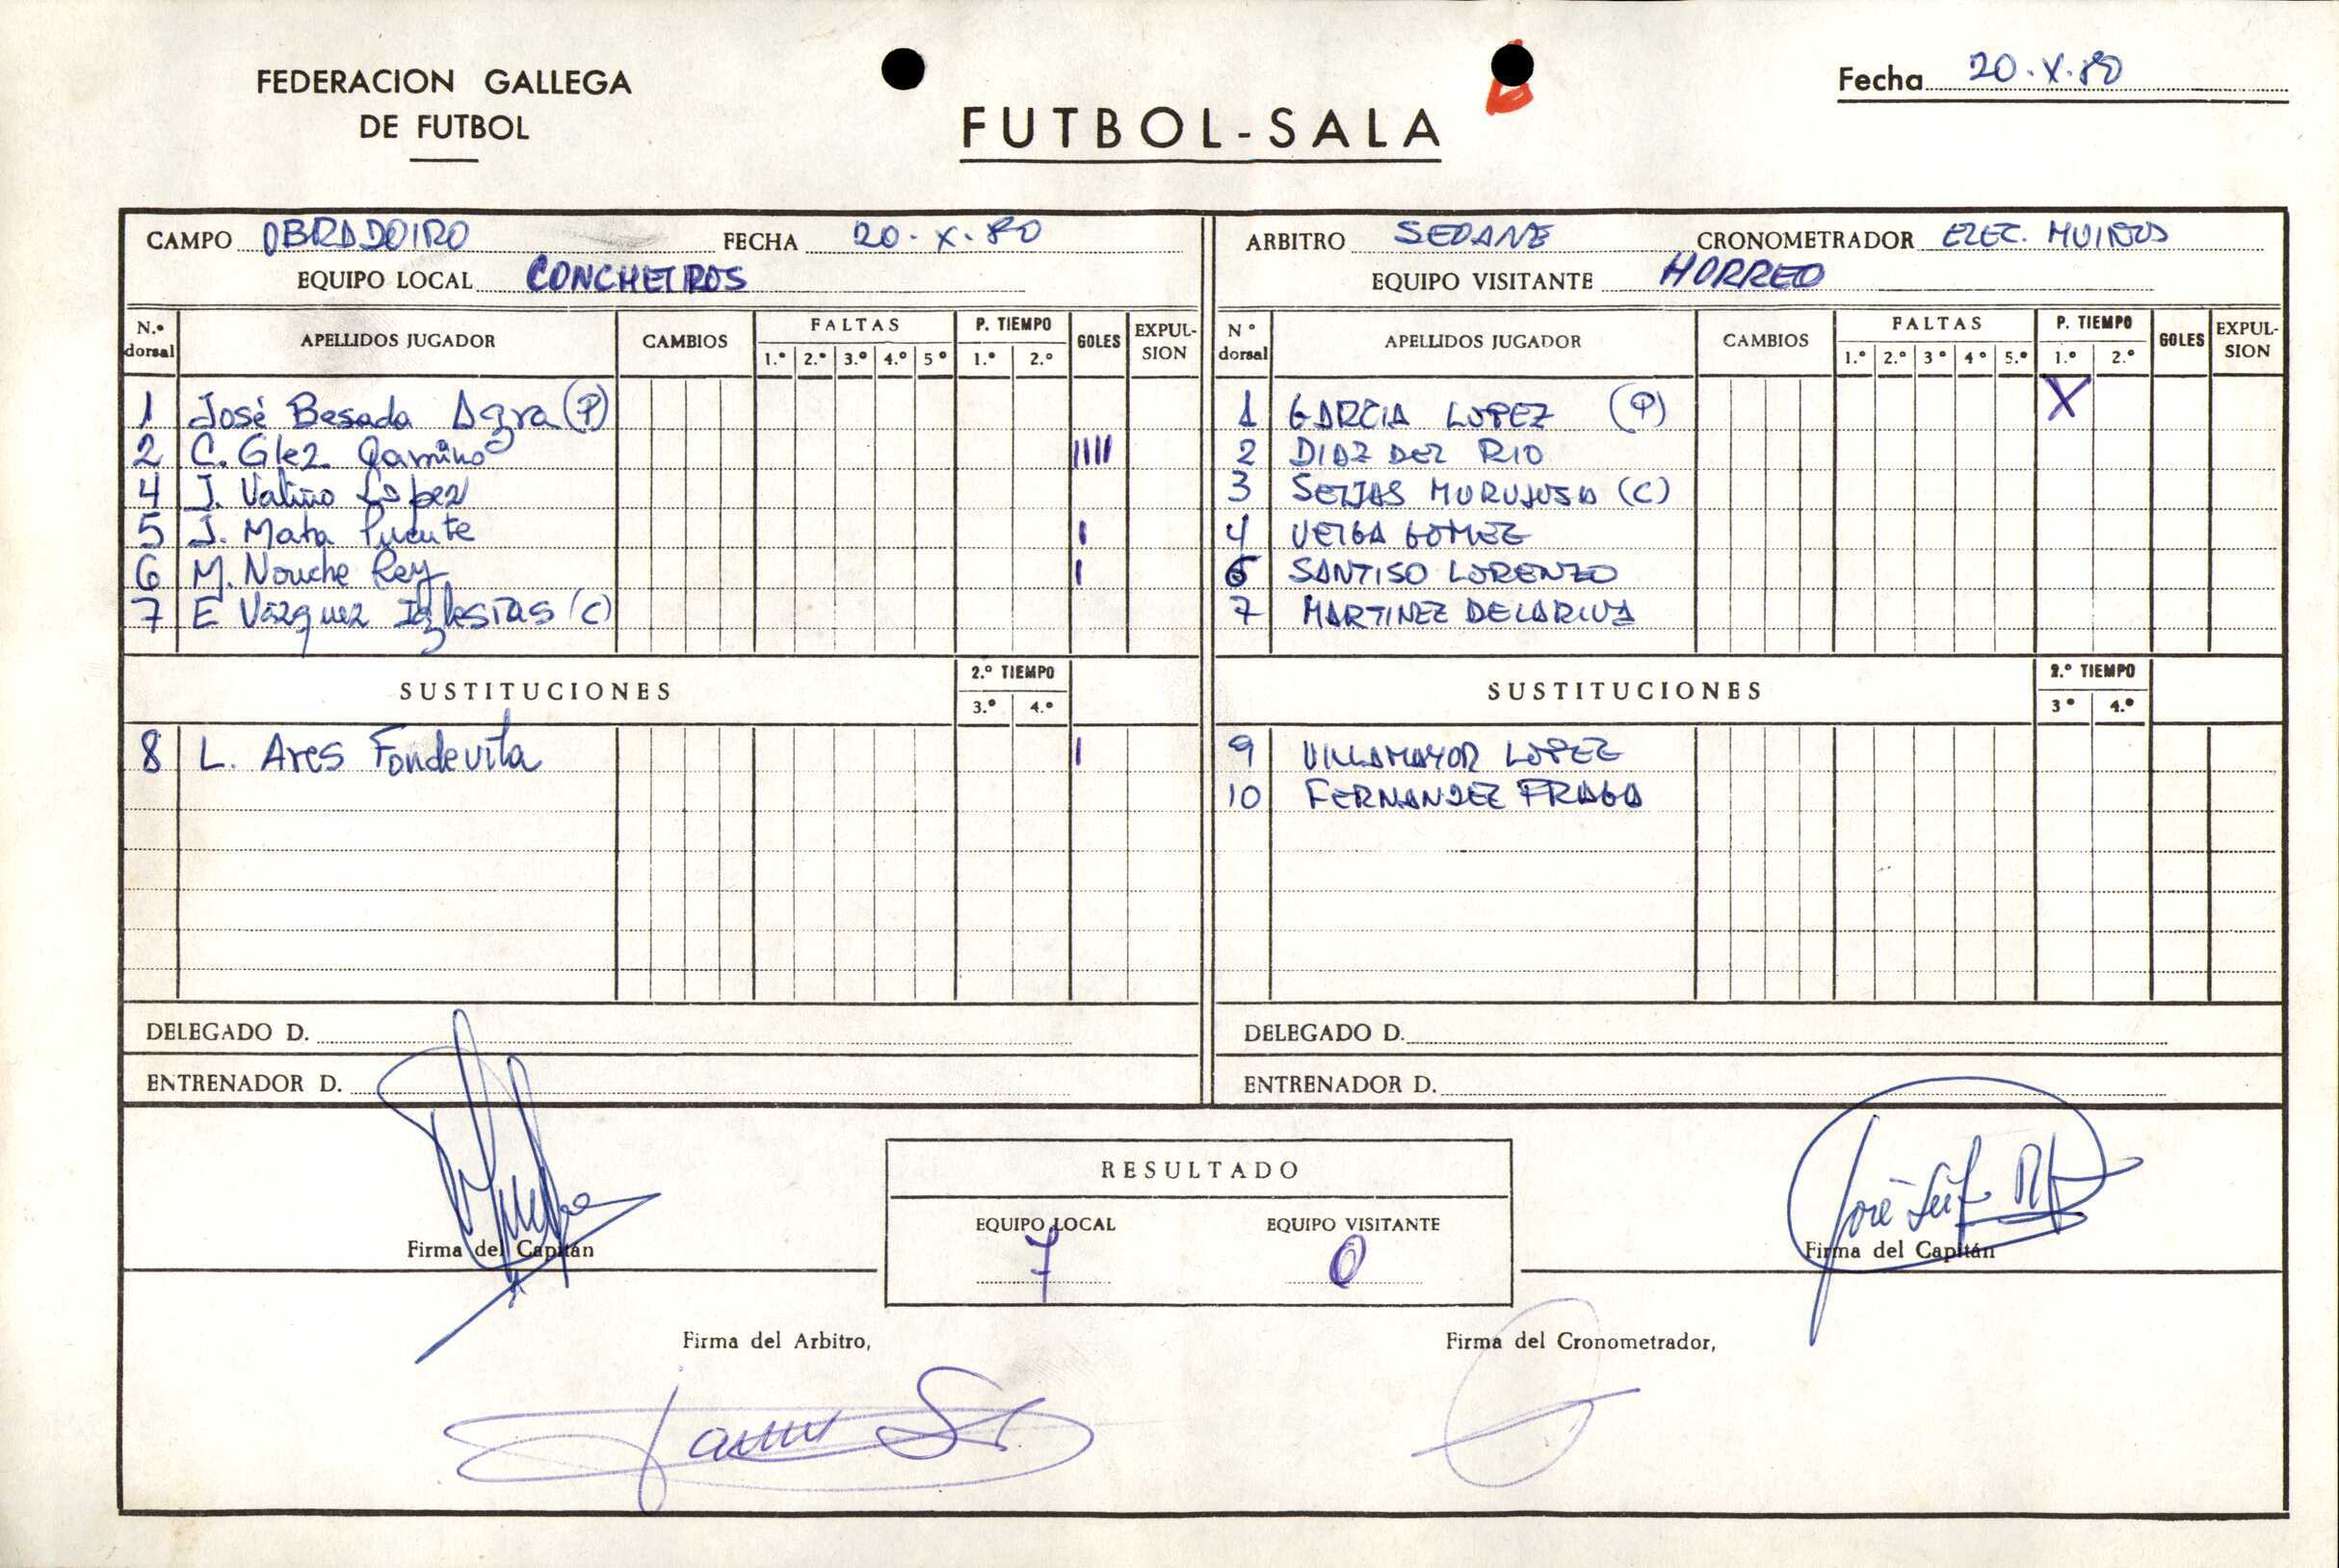 FEDERACION GALLEGA
DE FUTBOL
FUTBOL-SALA
Fecha 20.X.80
CAMPO OBRADOIRO FECHA 20-X-80
EQUIPO LOCAL CONCHEIROS
N.º dorsal APELLIDOS JUGADOR CAMBIOS FALTAS 1.º 2.º 3.º 4.º 5º P. TIEMPO 1.º 2.º GOLES EXPUL-SION
1 José Besada Agra (P)
2 C. Glez Camino IIII
4 J. Valiño López
5 J. Mata Puente I
6 M. Nouche Rey I
7 E Vázquez Iglesias (C)
SUSTITUCIONES 2.º TIEMPO 3.º 4.º
8 L. Ares Fondevila I
DELEGADO D.
ENTRENADOR D.
ARBITRO SEOANE CRONOMETRADOR ELEC. MUIÑOS
EQUIPO VISITANTE HORREO
Nº dorsal APELLIDOS JUGADOR CAMBIOS FALTAS 1.º 2.º 3º 4º 5.º P. TIEMPO 1.º 2.º GOLES EXPUL-SION
1 GARCIA LOPEZ (P) X
2 DIAZ DEL RIO
3 SEIJAS MURUJOSA (C)
4 VEIGA GOMEZ
6 SANTISO LORENZO
7 MARTINEZ DELARIVA
SUSTITUCIONES 2.º TIEMPO 3º 4.º
9 VILLAMAYOR LOPEZ
10 FERNANDEZ FRAGA
DELEGADO D.
ENTRENADOR D.
Firma del Capitán
RESULTADO
EQUIPO LOCAL EQUIPO VISITANTE
7 0
Firma del Capitán
Firma del Arbitro,
Firma del Cronometrador,